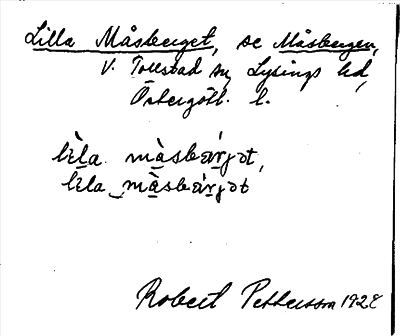 Lilla Måsberget, se Måsbergen,
V. Tollstad sn, Lysings hd,
Östergötl. l.
lìla màsbær̀jət,
lìla màsbær̀jət
Robert Pettersson 1928